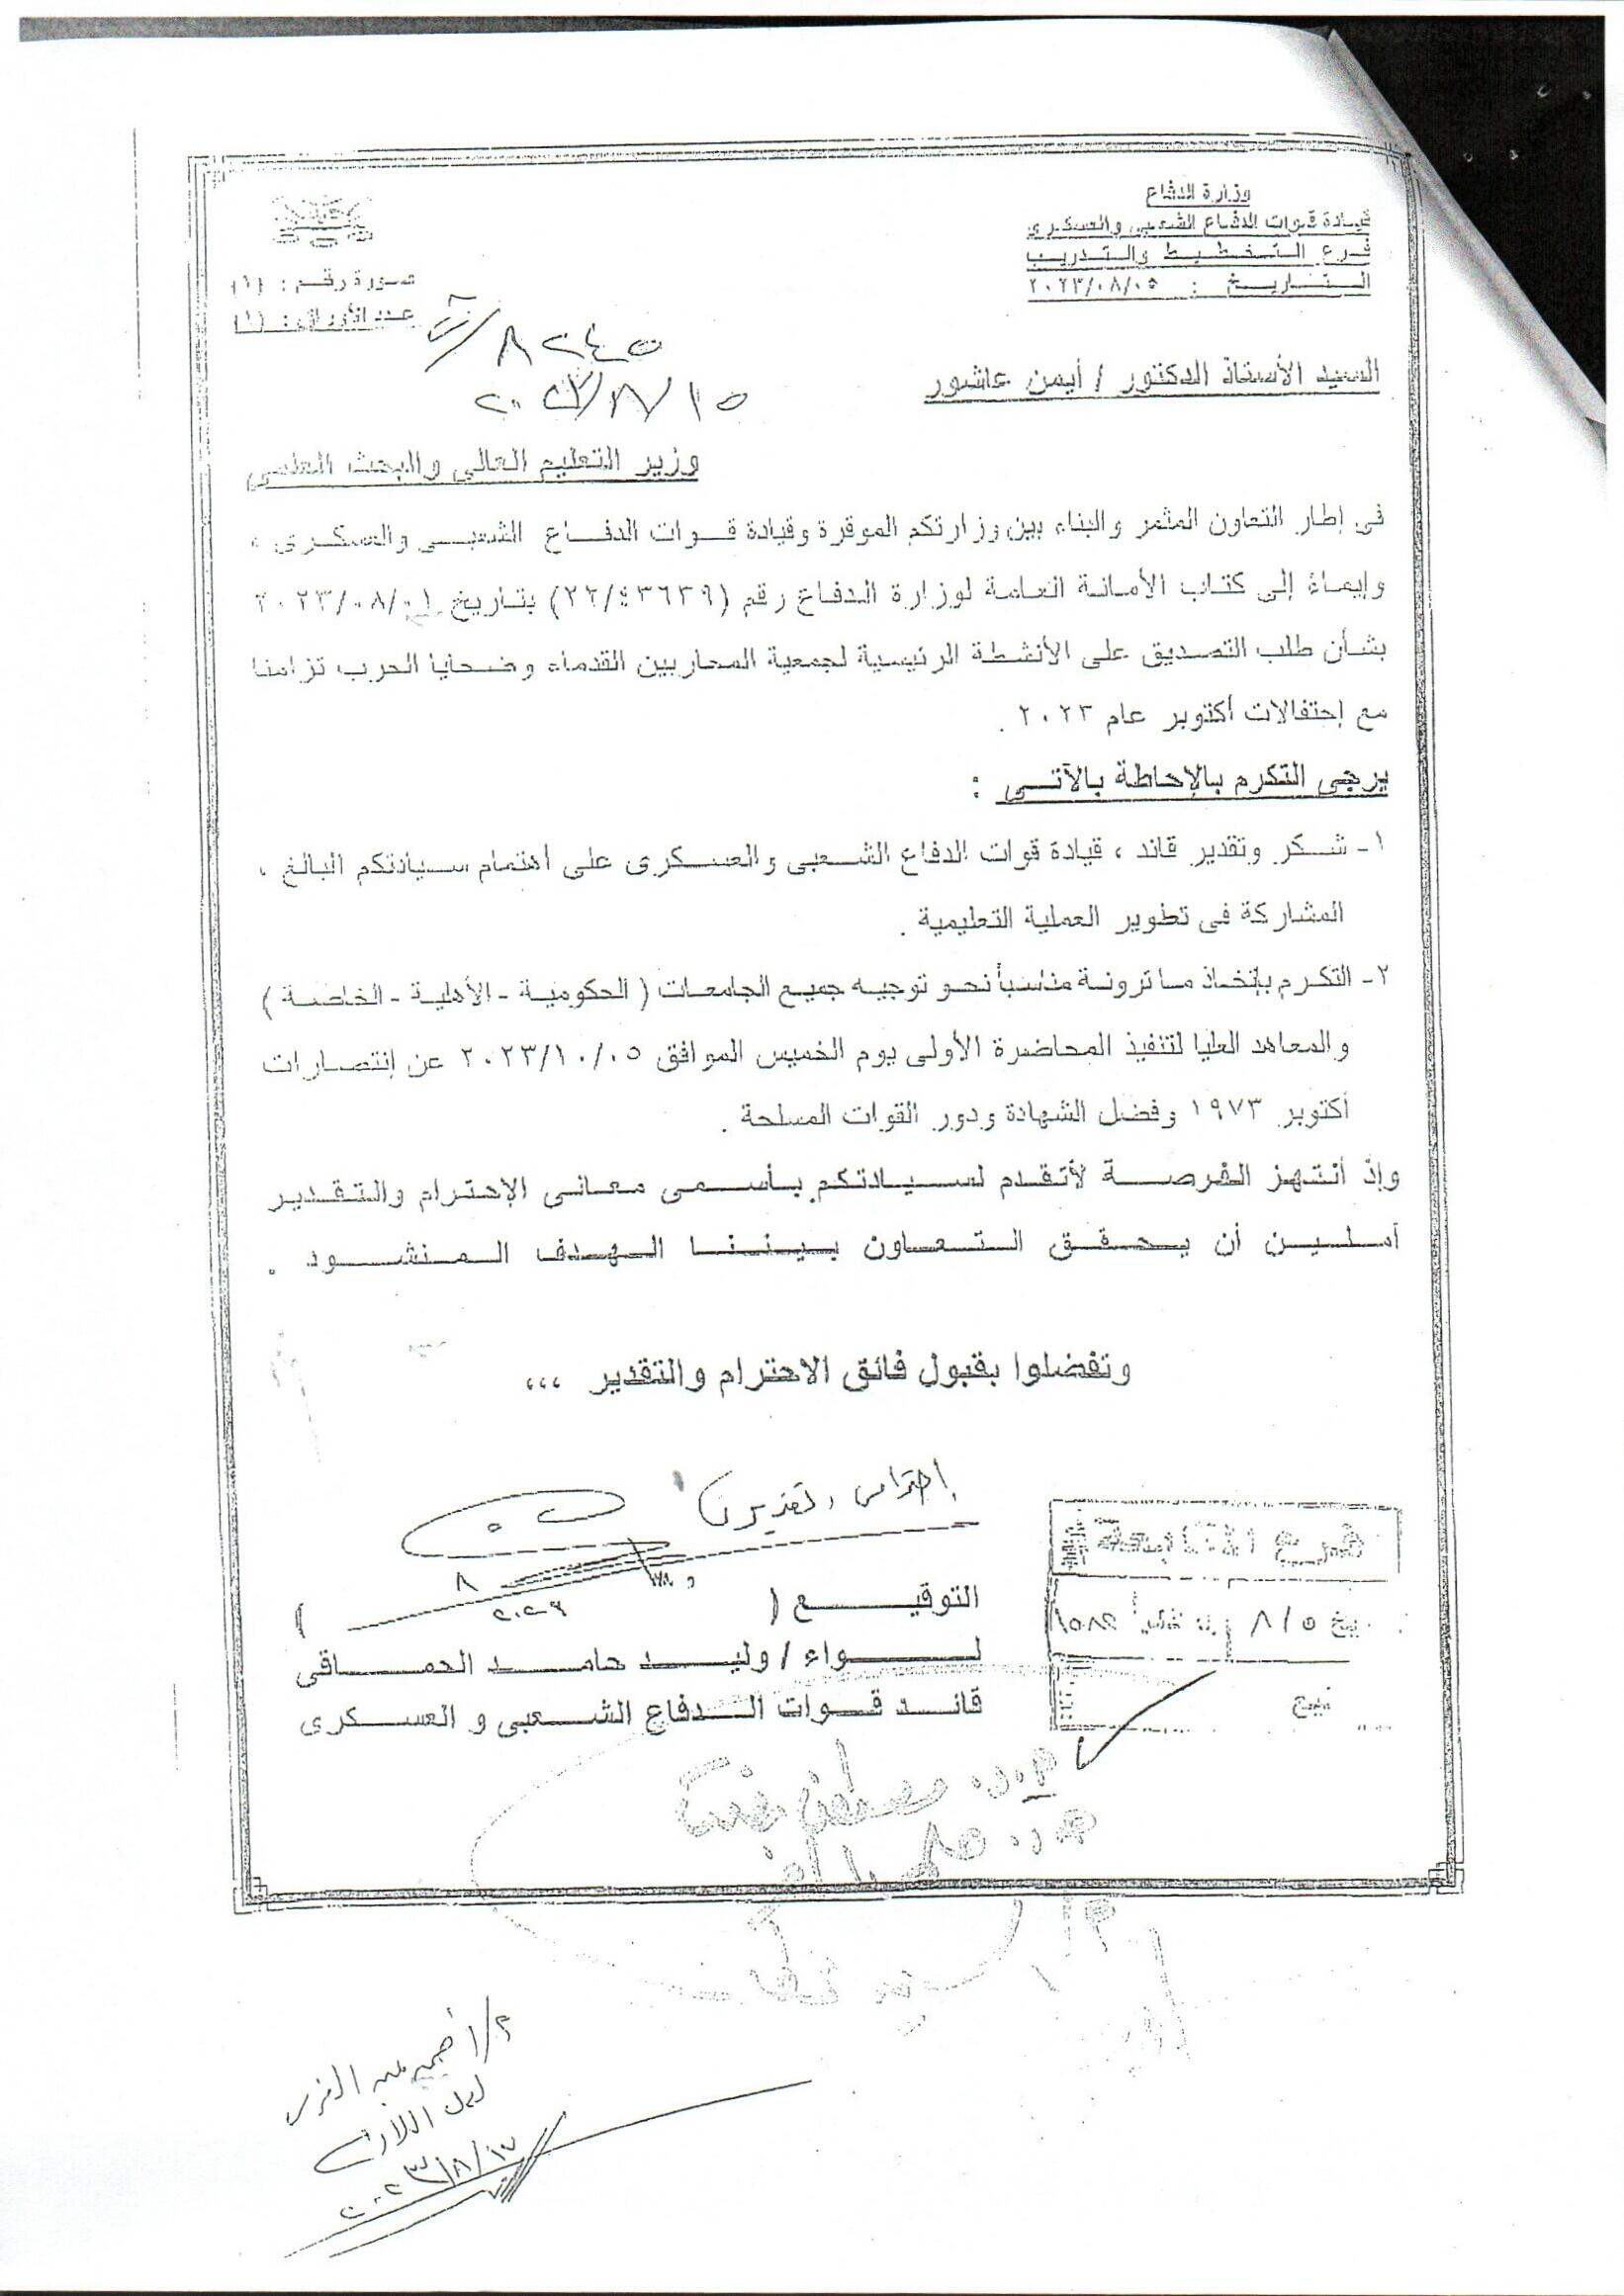 وزارة الدفاع
قيادة قوات الدفاع الشعبى والعسكرى
فرع التخطيط والتدريب
التاريخ : ٢٠٢٣/٠٨/٠٥
صورة رقم : (١)
عدد الأوراق : (١)
٨٢٤٥
٢٠٢٣/٨/١٥
السيد الأستاذ الدكتور / أيمن عاشور
وزير التعليم العالى والبحث العلمى
فى إطار التعاون المثمر والبناء بين وزارتكم الموقرة وقيادة قوات الدفاع الشعبى والعسكرى ،
وإيماءً إلى كتاب الأمانة العامة لوزارة الدفاع رقم (٢٢/٤٣٦٣٩) بتاريخ ٢٠٢٣/٠٨/٠١
بشأن طلب التصديق على الأنشطة الرئيسية لجمعية المحاربين القدماء وضحايا الحرب تزامنا
مع إحتفالات أكتوبر عام ٢٠٢٣ .
يرجى التكرم بالإحاطة بالآتى :
١- شكر وتقدير قائد ، قيادة قوات الدفاع الشعبى والعسكرى على أهتمام سيادتكم البالغ ،
المشاركة فى تطوير العملية التعليمية .
٢- التكرم بإتخاذ ما ترونة مناسباً نحو توجيه جميع الجامعات ( الحكومية - الأهلية - الخاصة )
والمعاهد العليا لتنفيذ المحاضرة الأولى يوم الخميس الموافق ٢٠٢٣/١٠/٠٥ عن إنتصارات
أكتوبر ١٩٧٣ وفضل الشهادة ودور القوات المسلحة .
وإذ أنتهز الفرصة لأتقدم لسيادتكم بأسمى معانى الإحترام والتقدير
أملين أن يحقق التعاون بيننا الهدف المنشود .
وتفضلوا بقبول فائق الاحترام والتقدير ،،،
التوقيع ( )
لواء / وليد حامد الحماقى
قائد قوات الدفاع الشعبى و العسكرى
فرع المتابعة
٨/٥
٢٠٢٣/٨/١٧